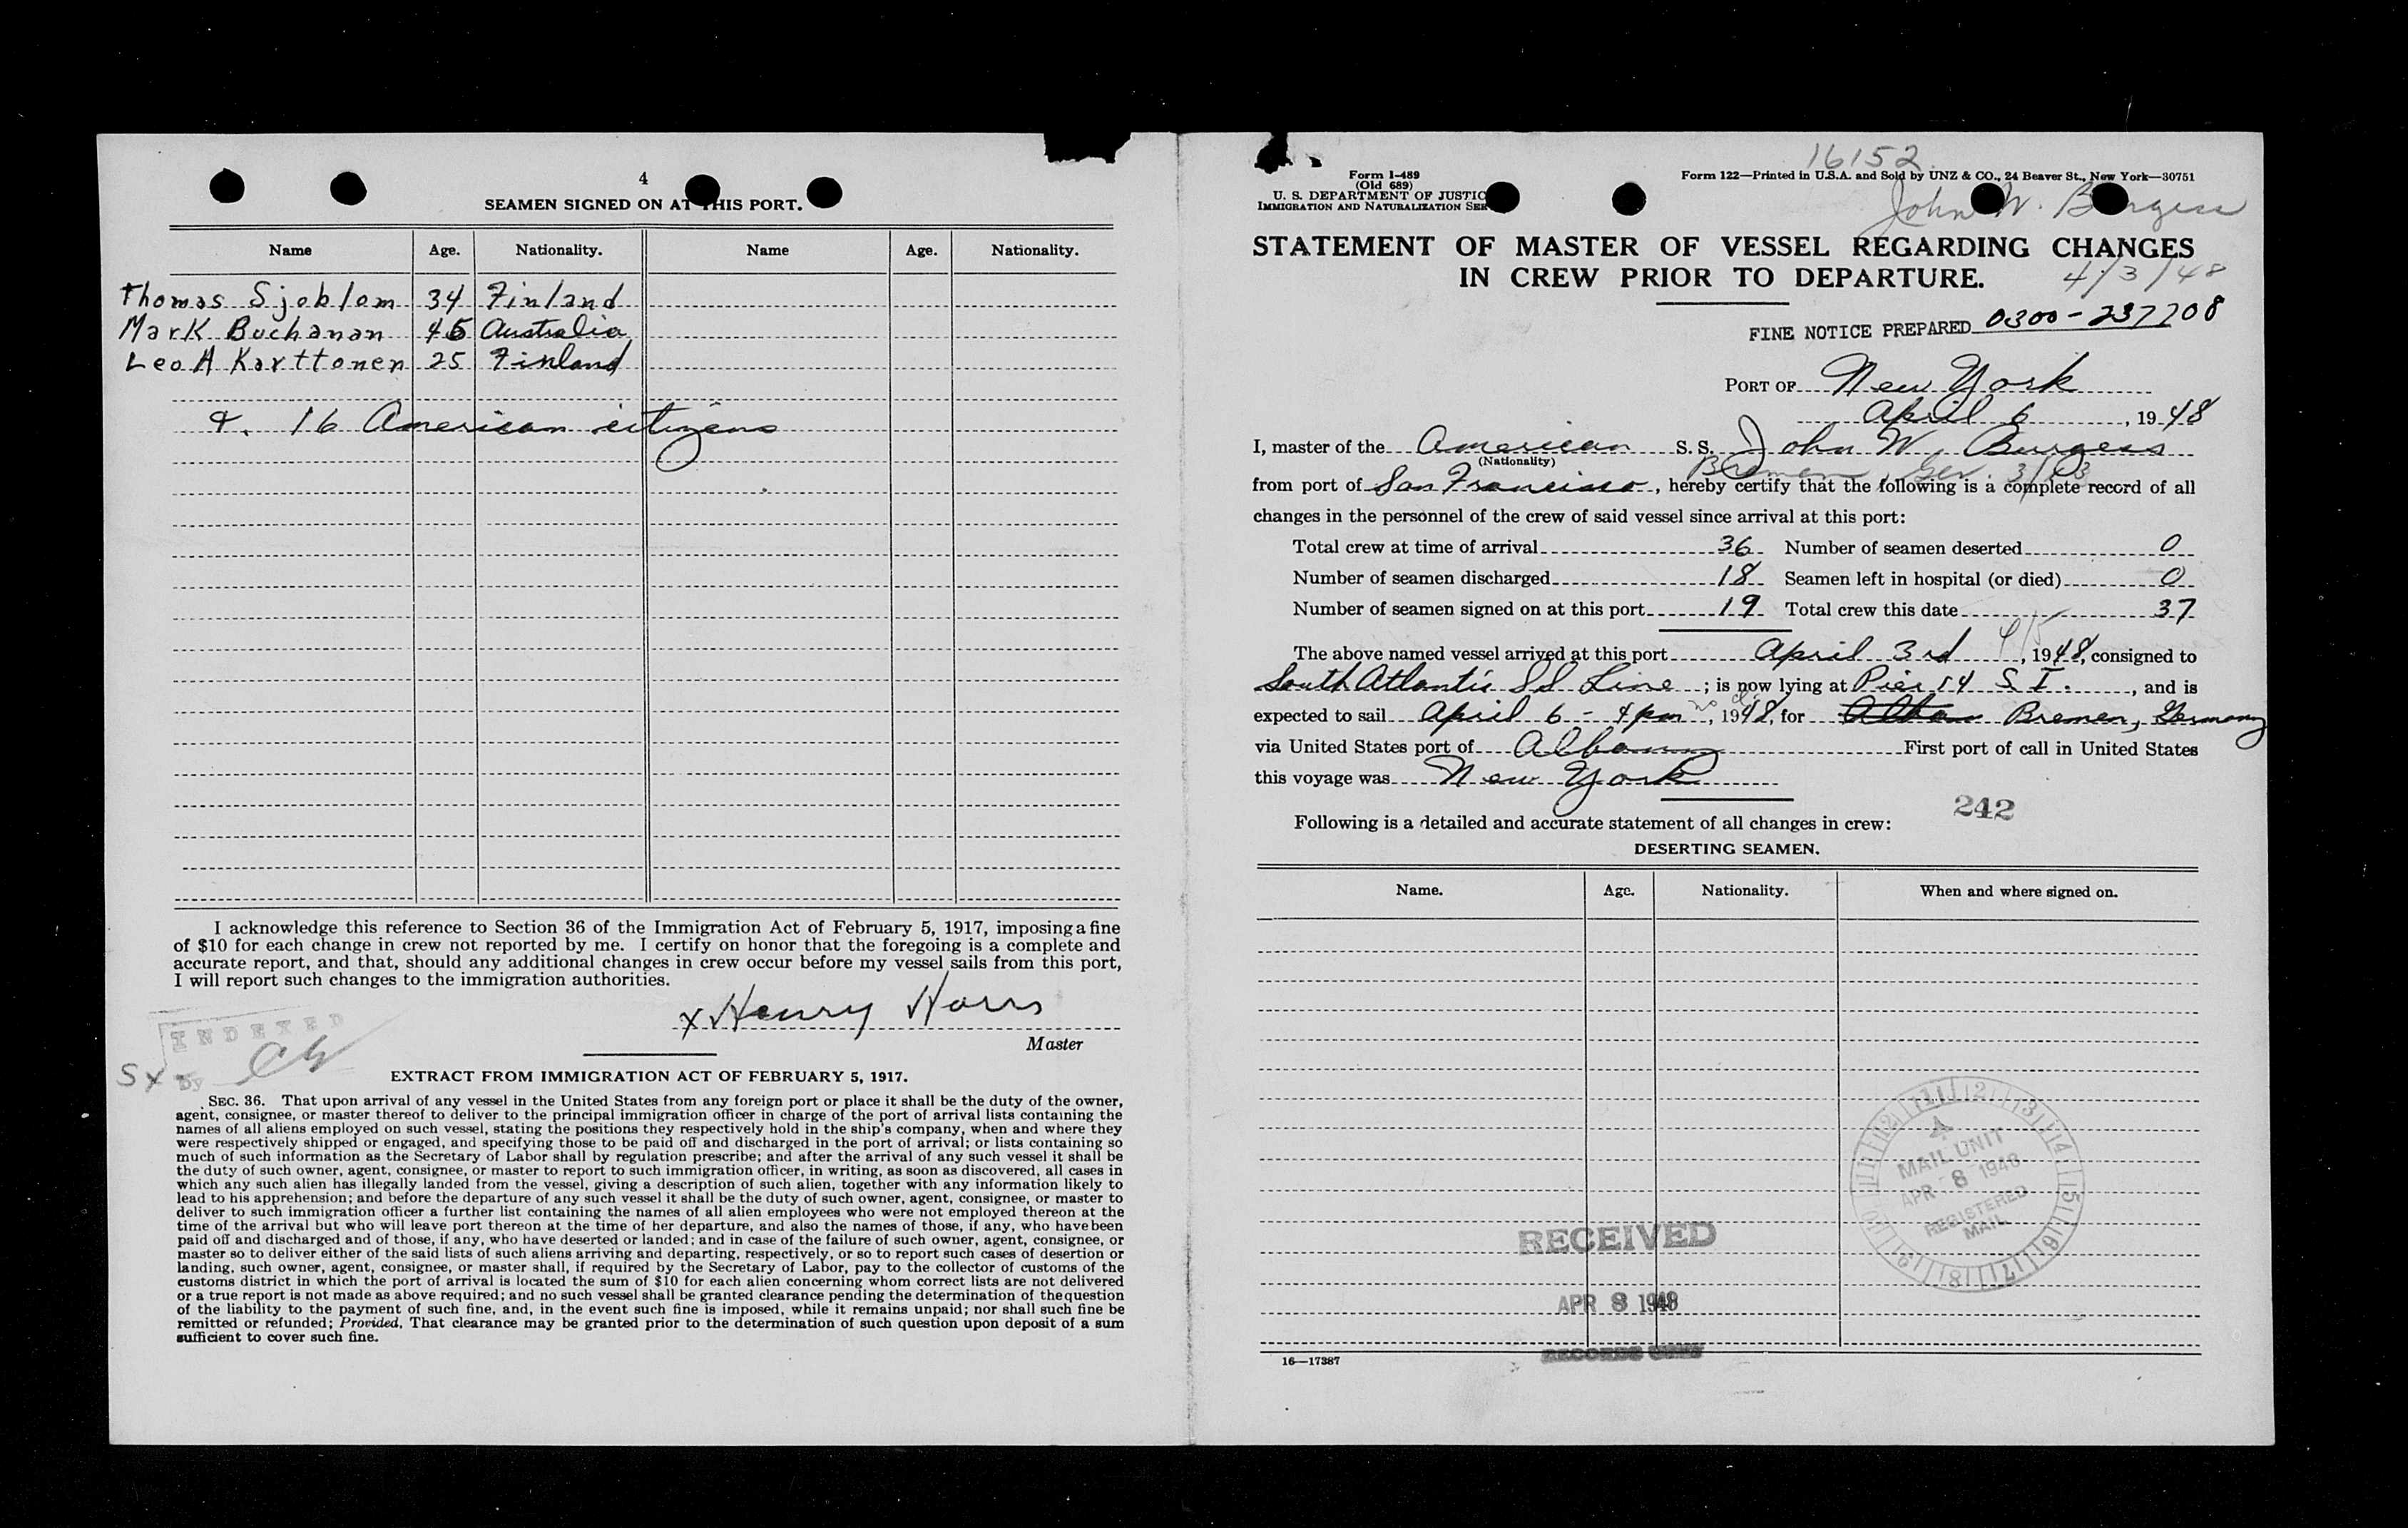 4
SEAMEN SIGNED ON AT THIS PORT.
Name Age. Nationality. Name Age. Nationality.
Thomas Sjoblom 34 Finland
Mark Buchanan 45 Australia
Leo A Karttonen 25 Finland
&. 16 American citizens
I acknowledge this reference to Section 36 of the Immigration Act of February 5, 1917, imposing a fine
of $10 for each change in crew not reported by me. I certify on honor that the foregoing is a complete and
accurate report, and that, should any additional changes in crew occur before my vessel sails from this port,
I will report such changes to the immigration authorities.
x Henry
Master
INDEXED
Sx By
EXTRACT FROM IMMIGRATION ACT OF FEBRUARY 5, 1917.
SEC. 36. That upon arrival of any vessel in the United States from any foreign port or place it shall be the duty of the owner,
agent, consignee, or master thereof to deliver to the principal immigration officer in charge of the port of arrival lists containing the
names of all aliens employed on such vessel, stating the positions they respectively hold in the ship's company, when and where they
were respectively shipped or engaged, and specifying those to be paid off and discharged in the port of arrival; or lists containing so
much of such information as the Secretary of Labor shall by regulation prescribe; and after the arrival of any such vessel it shall be
the duty of such owner, agent, consignee, or master to report to such immigration officer, in writing, as soon as discovered, all cases in
which any such alien has illegally landed from the vessel, giving a description of such alien, together with any information likely to
lead to his apprehension; and before the departure of any such vessel it shall be the duty of such owner, agent, consignee, or master to
deliver to such immigration officer a further list containing the names of all alien employees who were not employed thereon at the
time of the arrival but who will leave port thereon at the time of her departure, and also the names of those, if any, who have been
paid off and discharged and of those, if any, who have deserted or landed; and in case of the failure of such owner, agent, consignee, or
master so to deliver either of the said lists of such aliens arriving and departing, respectively, or so to report such cases of desertion or
landing, such owner, agent, consignee, or master shall, if required by the Secretary of Labor, pay to the collector of customs of the
customs district in which the port of arrival is located the sum of $10 for each alien concerning whom correct lists are not delivered
or a true report is not made as above required; and no such vessel shall be granted clearance pending the determination of the question
of the liability to the payment of such fine, and, in the event such fine is imposed, while it remains unpaid; nor shall such fine be
remitted or refunded; Provided, That clearance may be granted prior to the determination of such question upon deposit of a sum
sufficient to cover such fine.
16152
Form I-489
(Old 689)
U. S. DEPARTMENT OF JUSTIC
IMMIGRATION AND NATURALIZATION SER
Form 122—Printed in U.S.A. and Sold by UNZ & CO., 24 Beaver St., New York—30751
John W. Burgess
STATEMENT OF MASTER OF VESSEL REGARDING CHANGES
IN CREW PRIOR TO DEPARTURE.
4/3/48
FINE NOTICE PREPARED 0300-237208
PORT OF New York
April 6, 1948
I, master of the American S. S. John W. Burgess
(Nationality)
Bremen, Ger. 3/23
from port of San Francisco, hereby certify that the following is a complete record of all
changes in the personnel of the crew of said vessel since arrival at this port:
Total crew at time of arrival 36 Number of seamen deserted 0
Number of seamen discharged 18 Seamen left in hospital (or died) 0
Number of seamen signed on at this port 19 Total crew this date 37
The above named vessel arrived at this port April 3rd 4/5, 1948, consigned to
South Atlantic SS Line; is now lying at Pier 14 S. I., and is
expected to sail April 6 - 4 pm, 1948, for Bremen, Germany
via United States port of Albany First port of call in United States
this voyage was New York
242
Following is a detailed and accurate statement of all changes in crew:
DESERTING SEAMEN.
Name. Age. Nationality. When and where signed on.
MAIL UNIT
APR 8 1948
REGISTERED
MAIL
RECEIVED
APR 8 1948
RECORDS
16—17387